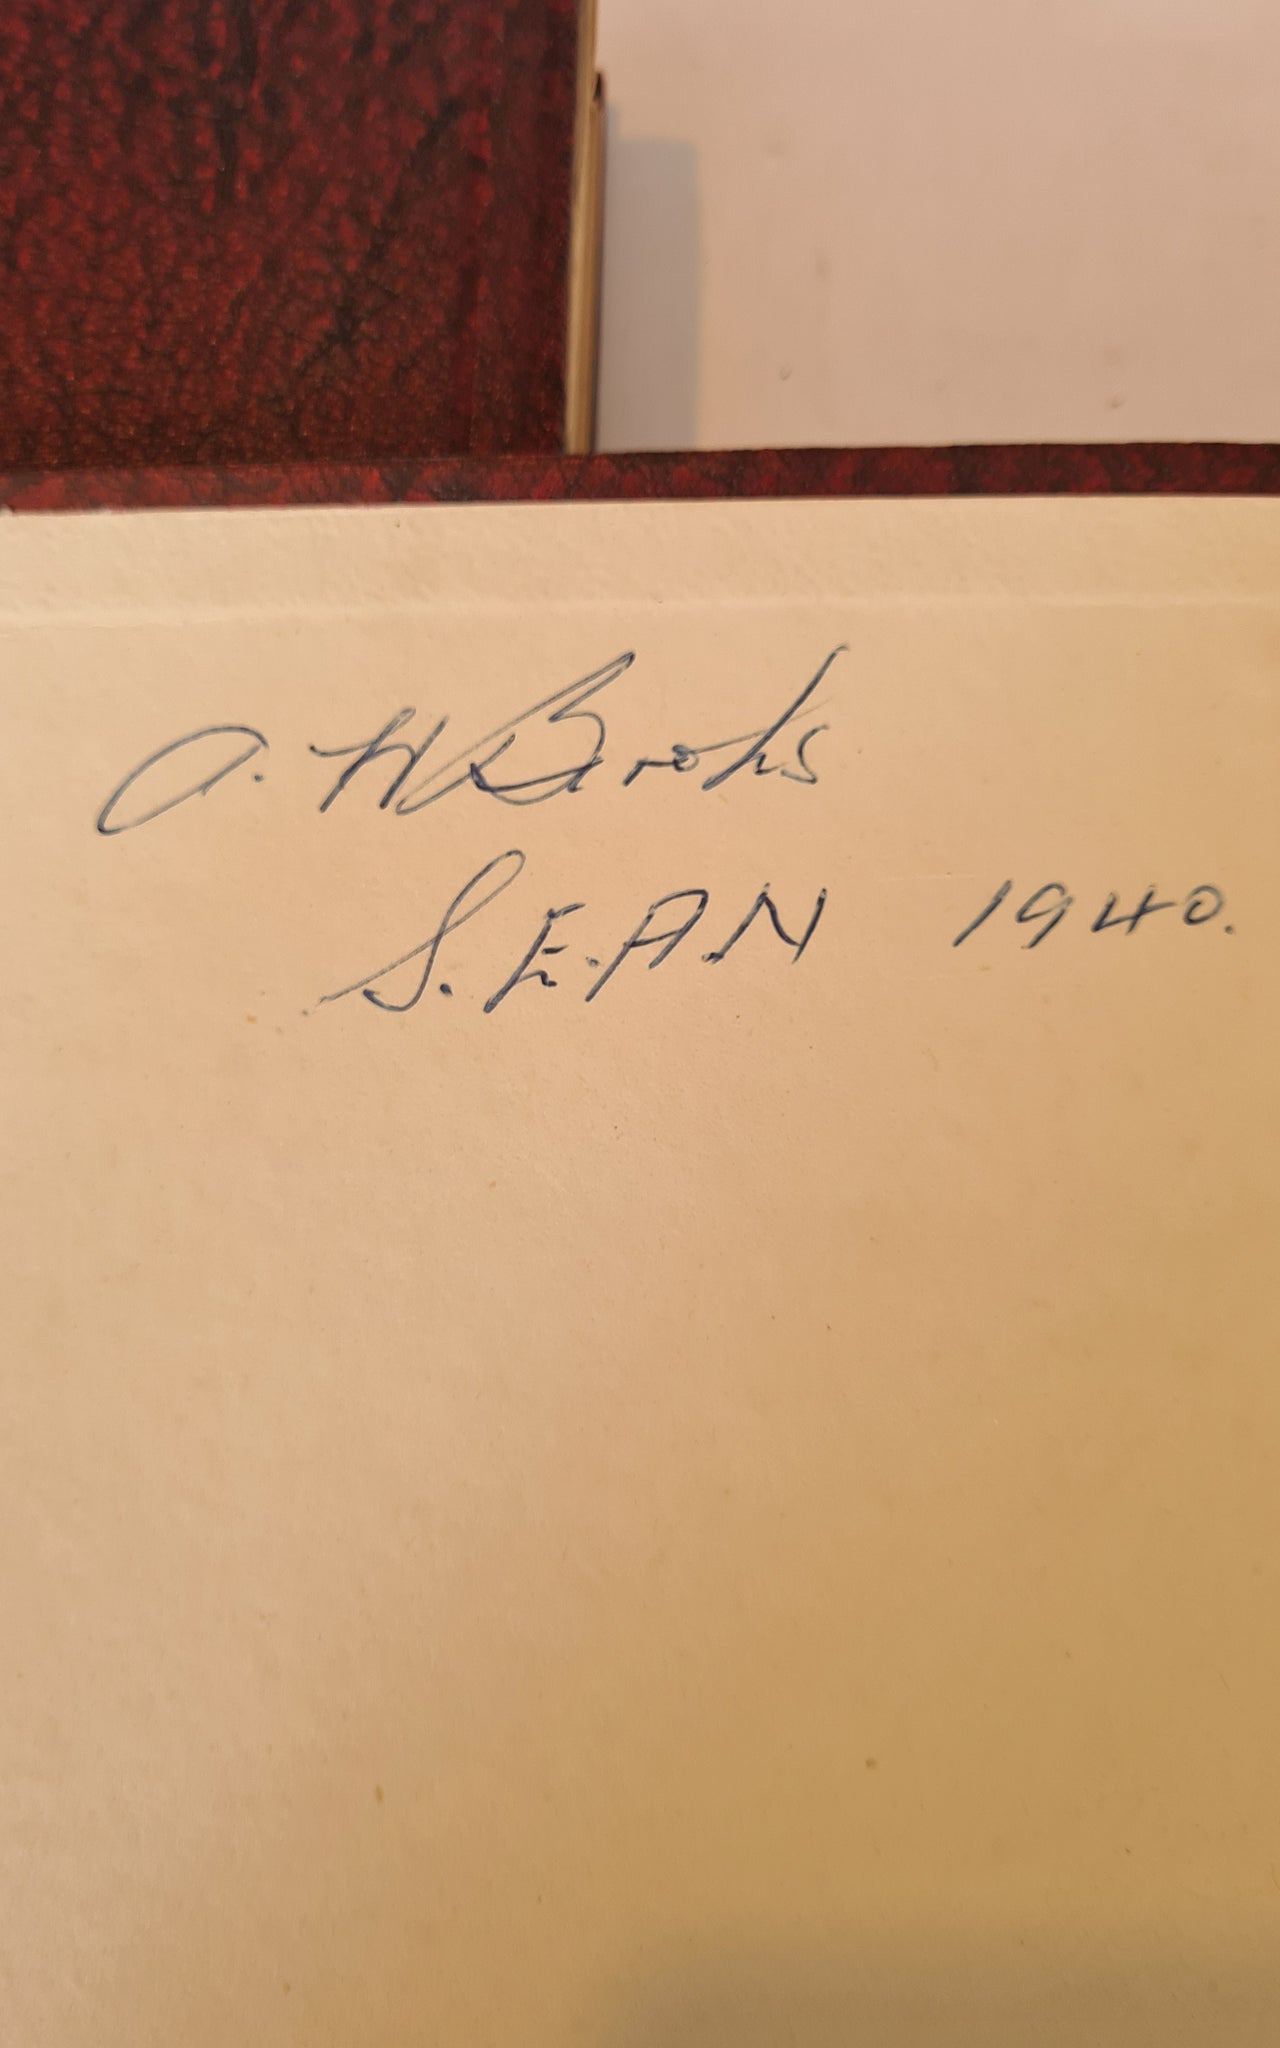 A. H Brooks
S.E.A.N 1940.